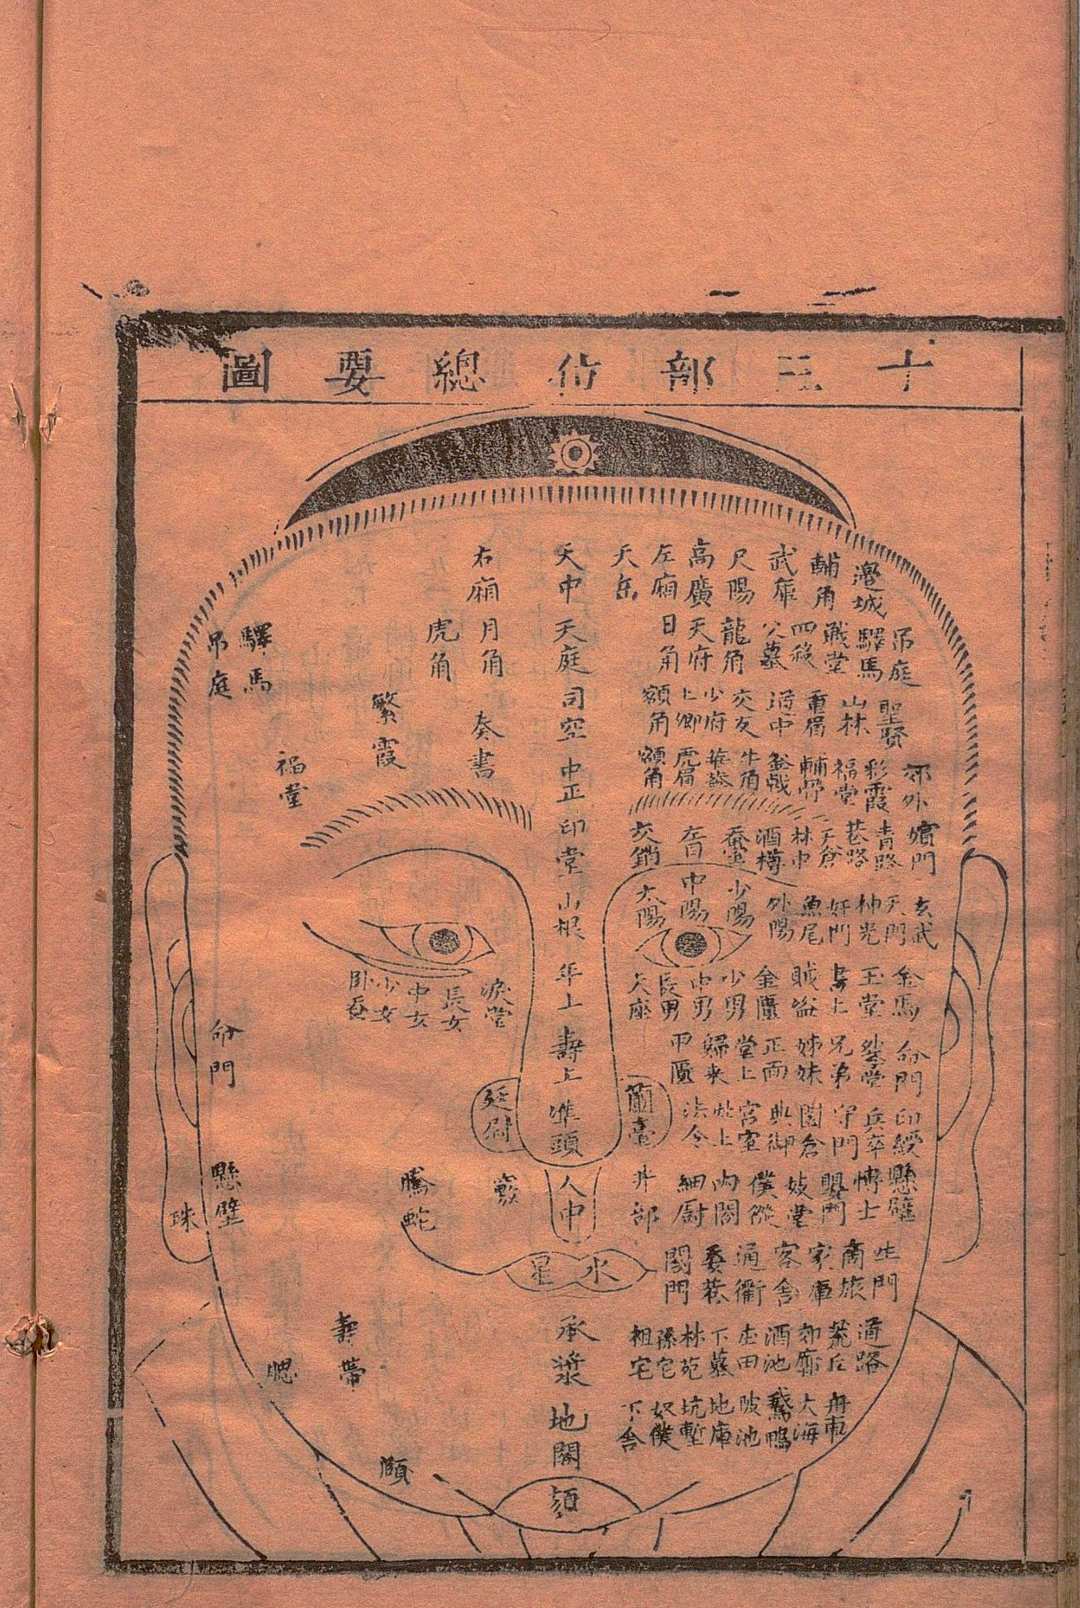 十三部位總要圖
天中天庭司空中正印堂山根年上壽上準頭人中
水星
承漿地閣
頦
天岳
左廂
日角
額角
高廣
天府
上卿
少府
尺陽
龍角
交友
武庫
公墓
道中
輔角
四殺
重眉
戰堂
山林
邊城
驛馬
吊庭
聖賢
額角
虎眉
華蓋
牛角
輔骨
福堂
彩霞
郊外
蚕室
酒樽
林中
天倉
巷路
青路
嬪門
太陽
中陽
少陽
外陽
魚尾
奸門
神光
天門
玄武
天座
長男
中男
少男
金匱
賊盜
書上
玉堂
金馬
歸來
堂上
正面
姊妹
兄弟
命門
蘭臺
法令
宮室
典御
園倉
守門
兵卒
印綬
井部
細厨
內閣
僕從
妓堂
博士
懸壁
閣門
委巷
通衢
客舍
家庫
商旅
生門
祖宅
孫宅
林苑
下墓
庄田
酒池
郊廓
荒丘
道路
下舍
奴僕
坑塹
地庫
陂池
鵝鴨
大海
舟車
右廂
月角
奏書
虎角
繁霞
驛馬
吊庭
福堂
淚堂
長女
中女
少女
臥蚕
命門
廷尉
懸壁
珠
騰蛇
壽帶
腮
頤